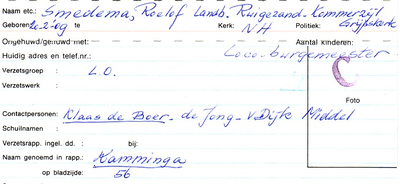 Naam etc.: Smedema, Roelof Landb. Ruigezand-Kommerzijl
Geboren: 20-2-09 Kerk: NH Politiek: Grijpskerk
Ongehuwd/gehuwd met: Aantal kinderen:
Huidig adres en telef.nr.: Loco-burgemeester
Verzetsgroep : L.O.
Verzetswerk :
Foto
Contactpersonen: Klaas de Boer - de Jong - v Dijk Middel
Schuilnamen :
Verzetsrapp. ingel. dd. : bij:
Naam genoemd in rapp.: Kamminga
op bladzijde: 56